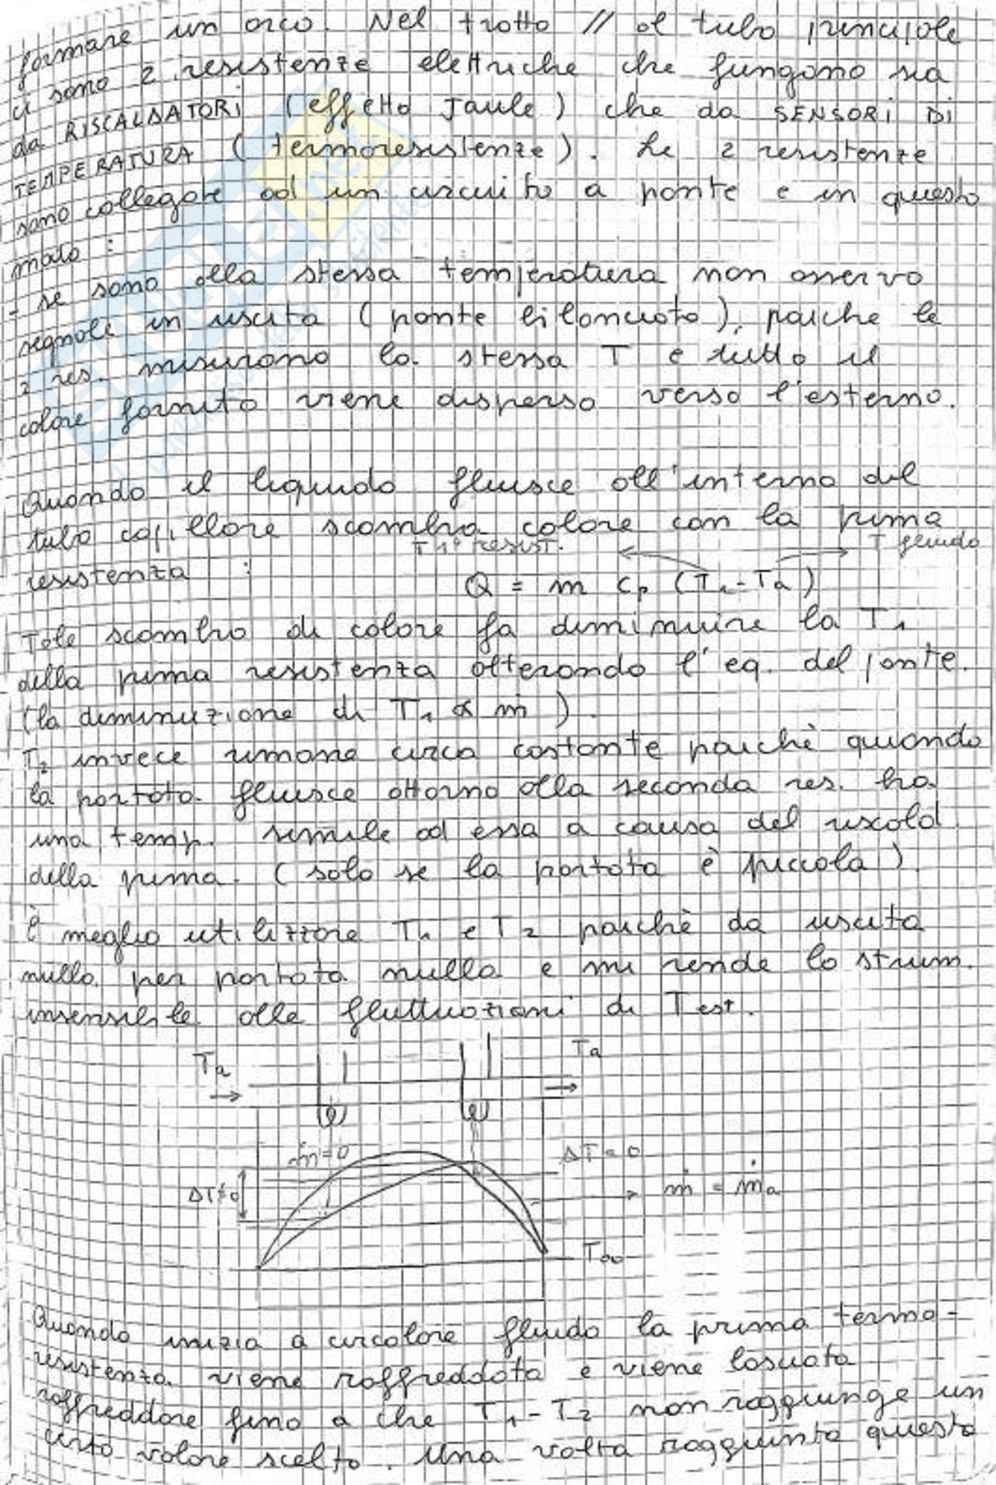 formare un arco. Nel tratto // al tubo principale
ci sono 2 resistenze elettriche che fungono sia
da RISCALDATORI (effetto Joule) che da SENSORI DI
TEMPERATURA (termoresistenze). Le 2 resistenze
sono collegate ad un circuito a ponte e in questo
modo :
- se sono alla stessa temperatura non osservo
segnale in uscita (ponte bilanciato), poiche le
2 res. misurano la stessa T e tutto il
calore fornito viene disperso verso l'esterno.
Quando il liquido fluisce all'interno del
tubo capillare scambia calore con la prima
T 1° resist. T fluido
resistenza : Q = m cp (T1-Ta)
Tale scambio di calore fa diminuire la T1
della prima resistenza alterando l'eq. del ponte.
(la diminuzione di T1 ∝ ṁ )
T2 invece rimane circa costante poichè quando
la portata fluisce attorno alla seconda res. ha
una temp. simile ad essa a causa del riscald.
della prima. (solo se la portata è piccola)
È meglio utilizzare T1 e T2 poichè da uscita
nulla per portata nulla e mi rende lo strum.
insensibile alle fluttuazioni di Test.
Ta Ta
ṁ=0 ΔT=0
ΔT≠0 ṁ = ṁa
T∞
Quando inizia a circolare fluido la prima termo-
resistenza viene raffreddata e viene lasciata
raffreddare fino a che T1-T2 non raggiunge un
certo valore scelto. Una volta raggiunto questo